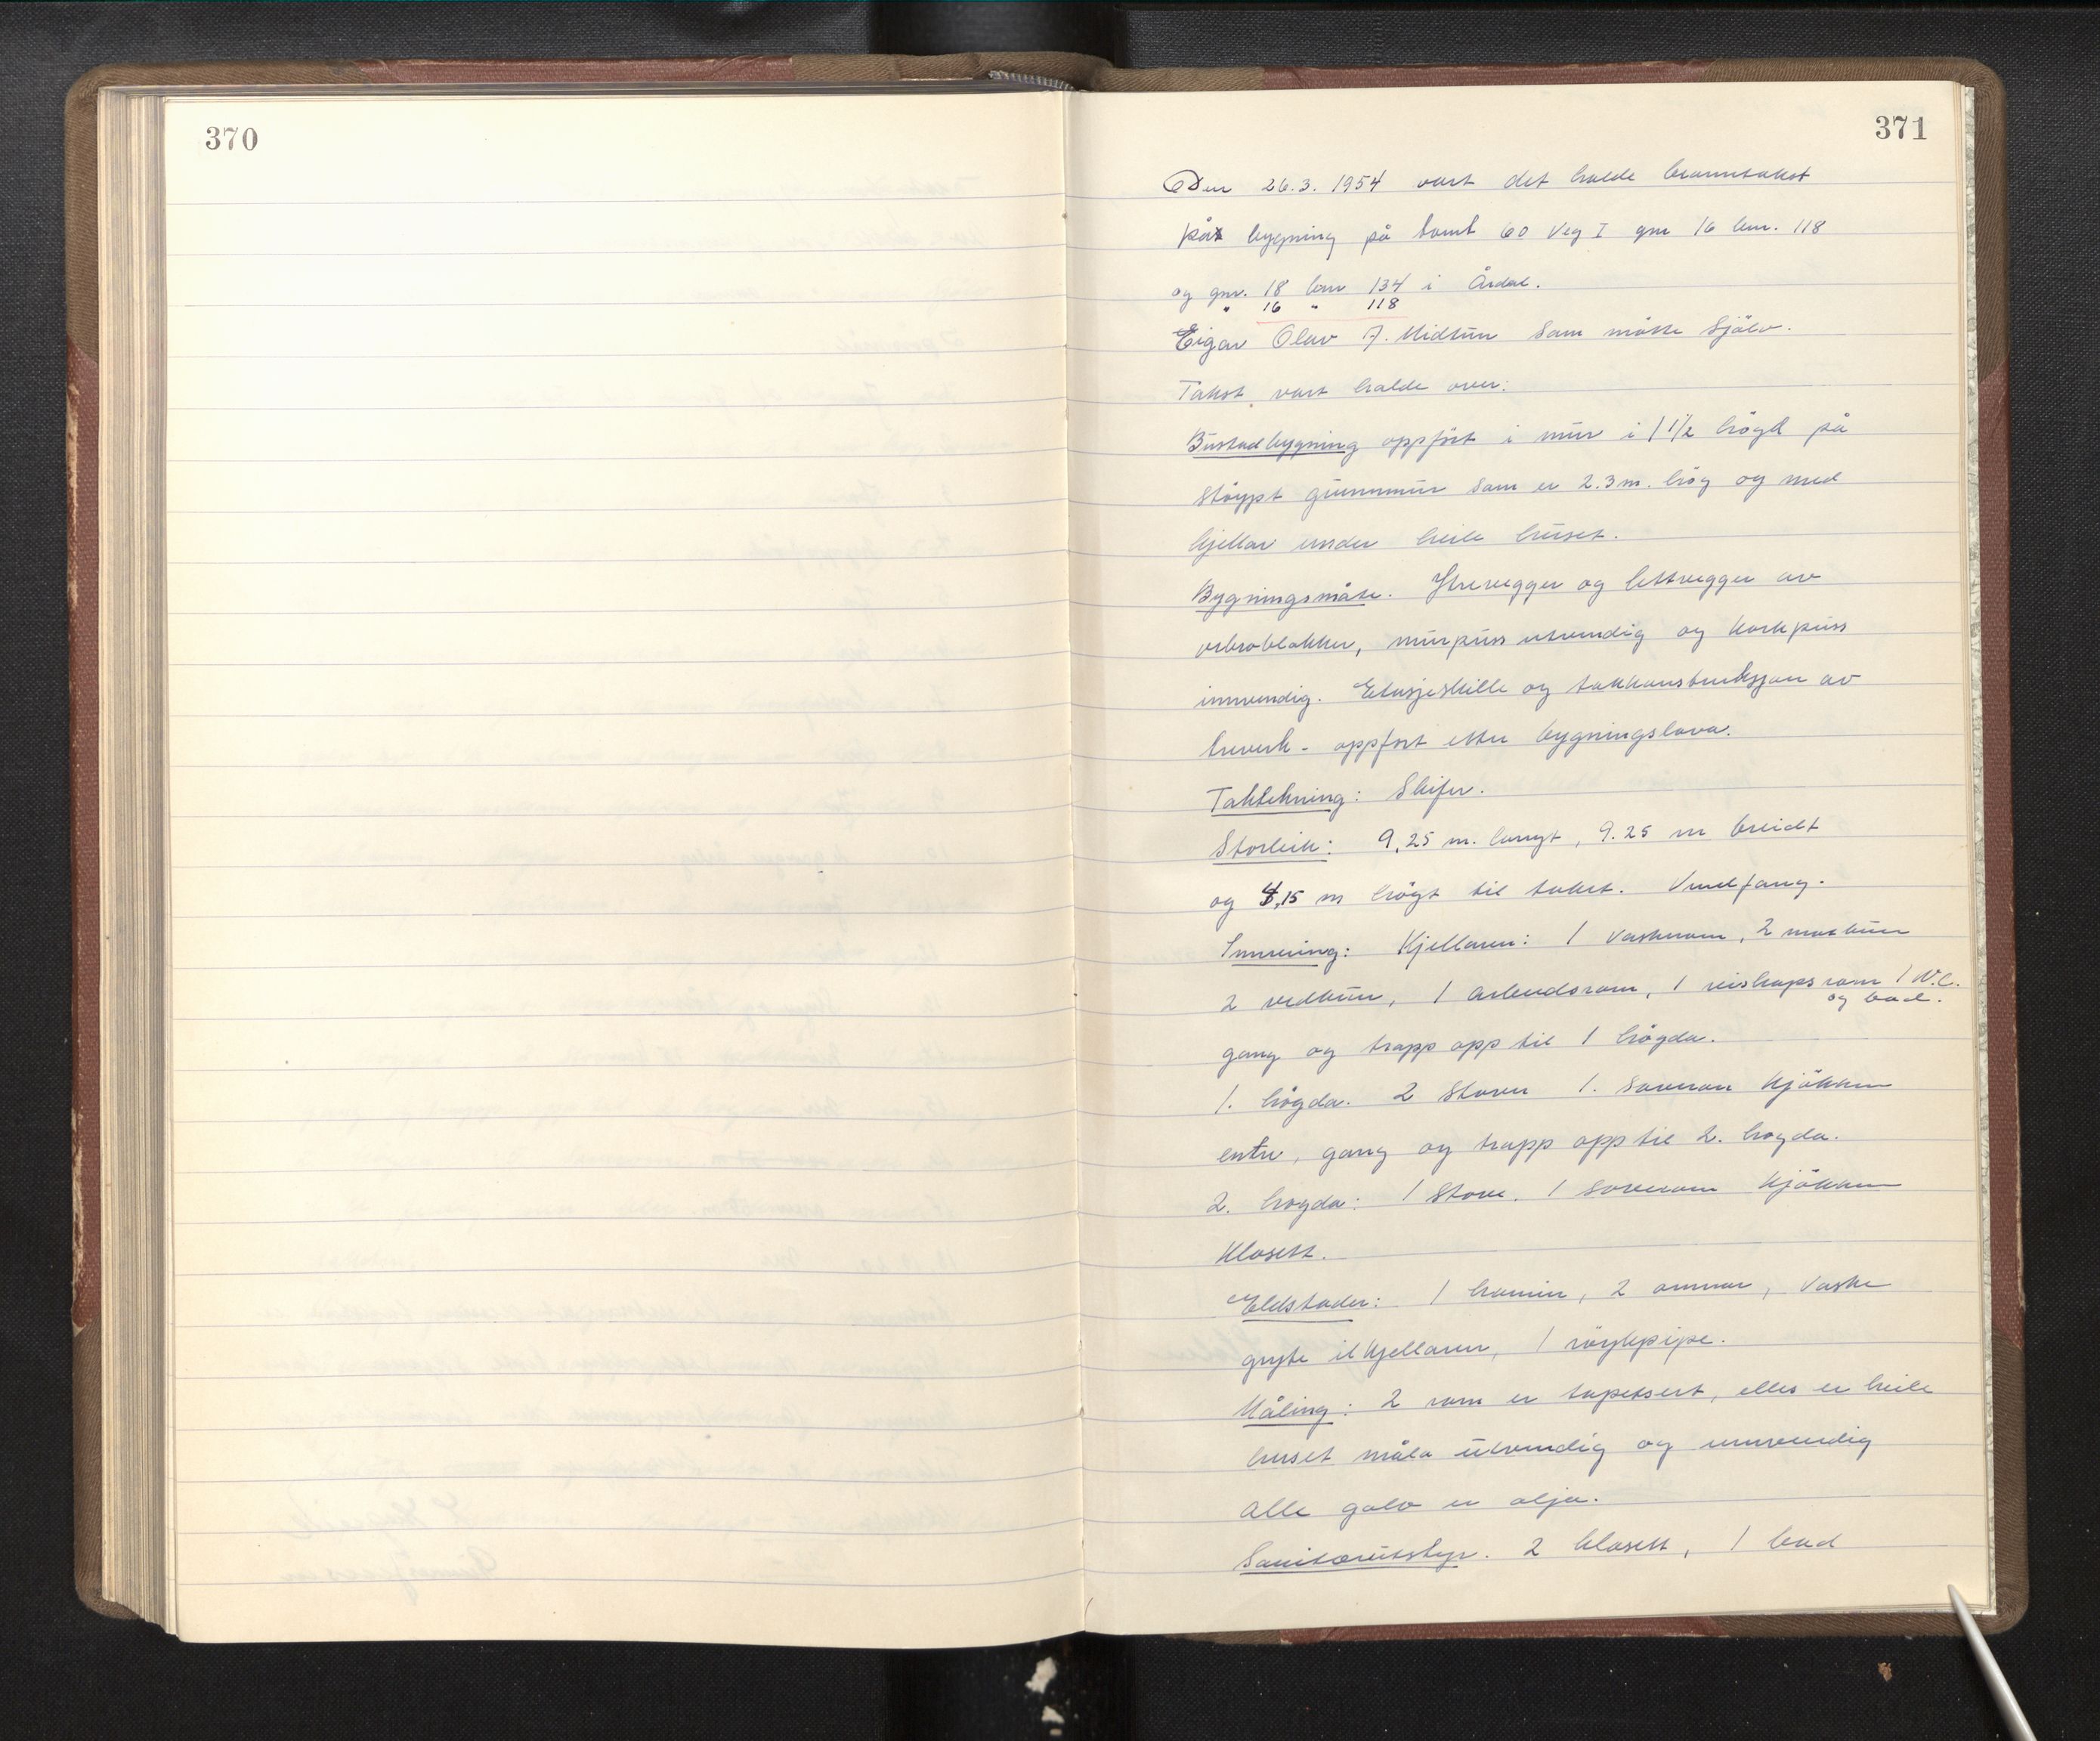 370
371
Den 26.3. 1954 vart det halde branntakst
på bygning på tomt 60 Veg I gnr 16 bnr. 118
og gnr. 18 bnr 134 i Årdal.
" 16 " 118
Eigar Olav J. Midtun som møtte sjølv.
Takst vart halde over:
Bustadbygning oppført i mur i 1 1/2 høgd på
støypt grunnmur som er 2.3 m. høg og med
kjellar under heile huset.
Bygningsmåte. Ytrevegger og lettvegger av
vibroblokker, murpuss utvendig og korkpuss
innvendig. Etasjeskille og takkonstruksjon av
treverk - oppført etter bygningslova.
Taktekning: Skifer.
Storleik: 9,25 m. langt, 9.25 m breidt
og 4,15 m høgt til taket. Vindfang.
Innreiing: Kjellaren: 1 vaskerom, 2 matbuer
2 vedbuer, 1 arbeidsrom, 1 reiskapsrom 1 W.C.
og bad.
gang og trapp opp til 1 høgda.
1. høgda. 2 stover 1. soverom kjøkken
entre, gang og trapp opp til 2. høgda.
2. høgda: 1 stove. 1 soverom kjøkken
klosett.
Eldstader: 1 kamin, 2 omnar, vaske
gryte i kjellaren, 1 røykpipe.
Måling: 2 rom er tapetsert, elles er heile
huset måla utvendig og innvendig
Alle golv er olja.
Sanitærutstyr. 2 klosett, 1 bad